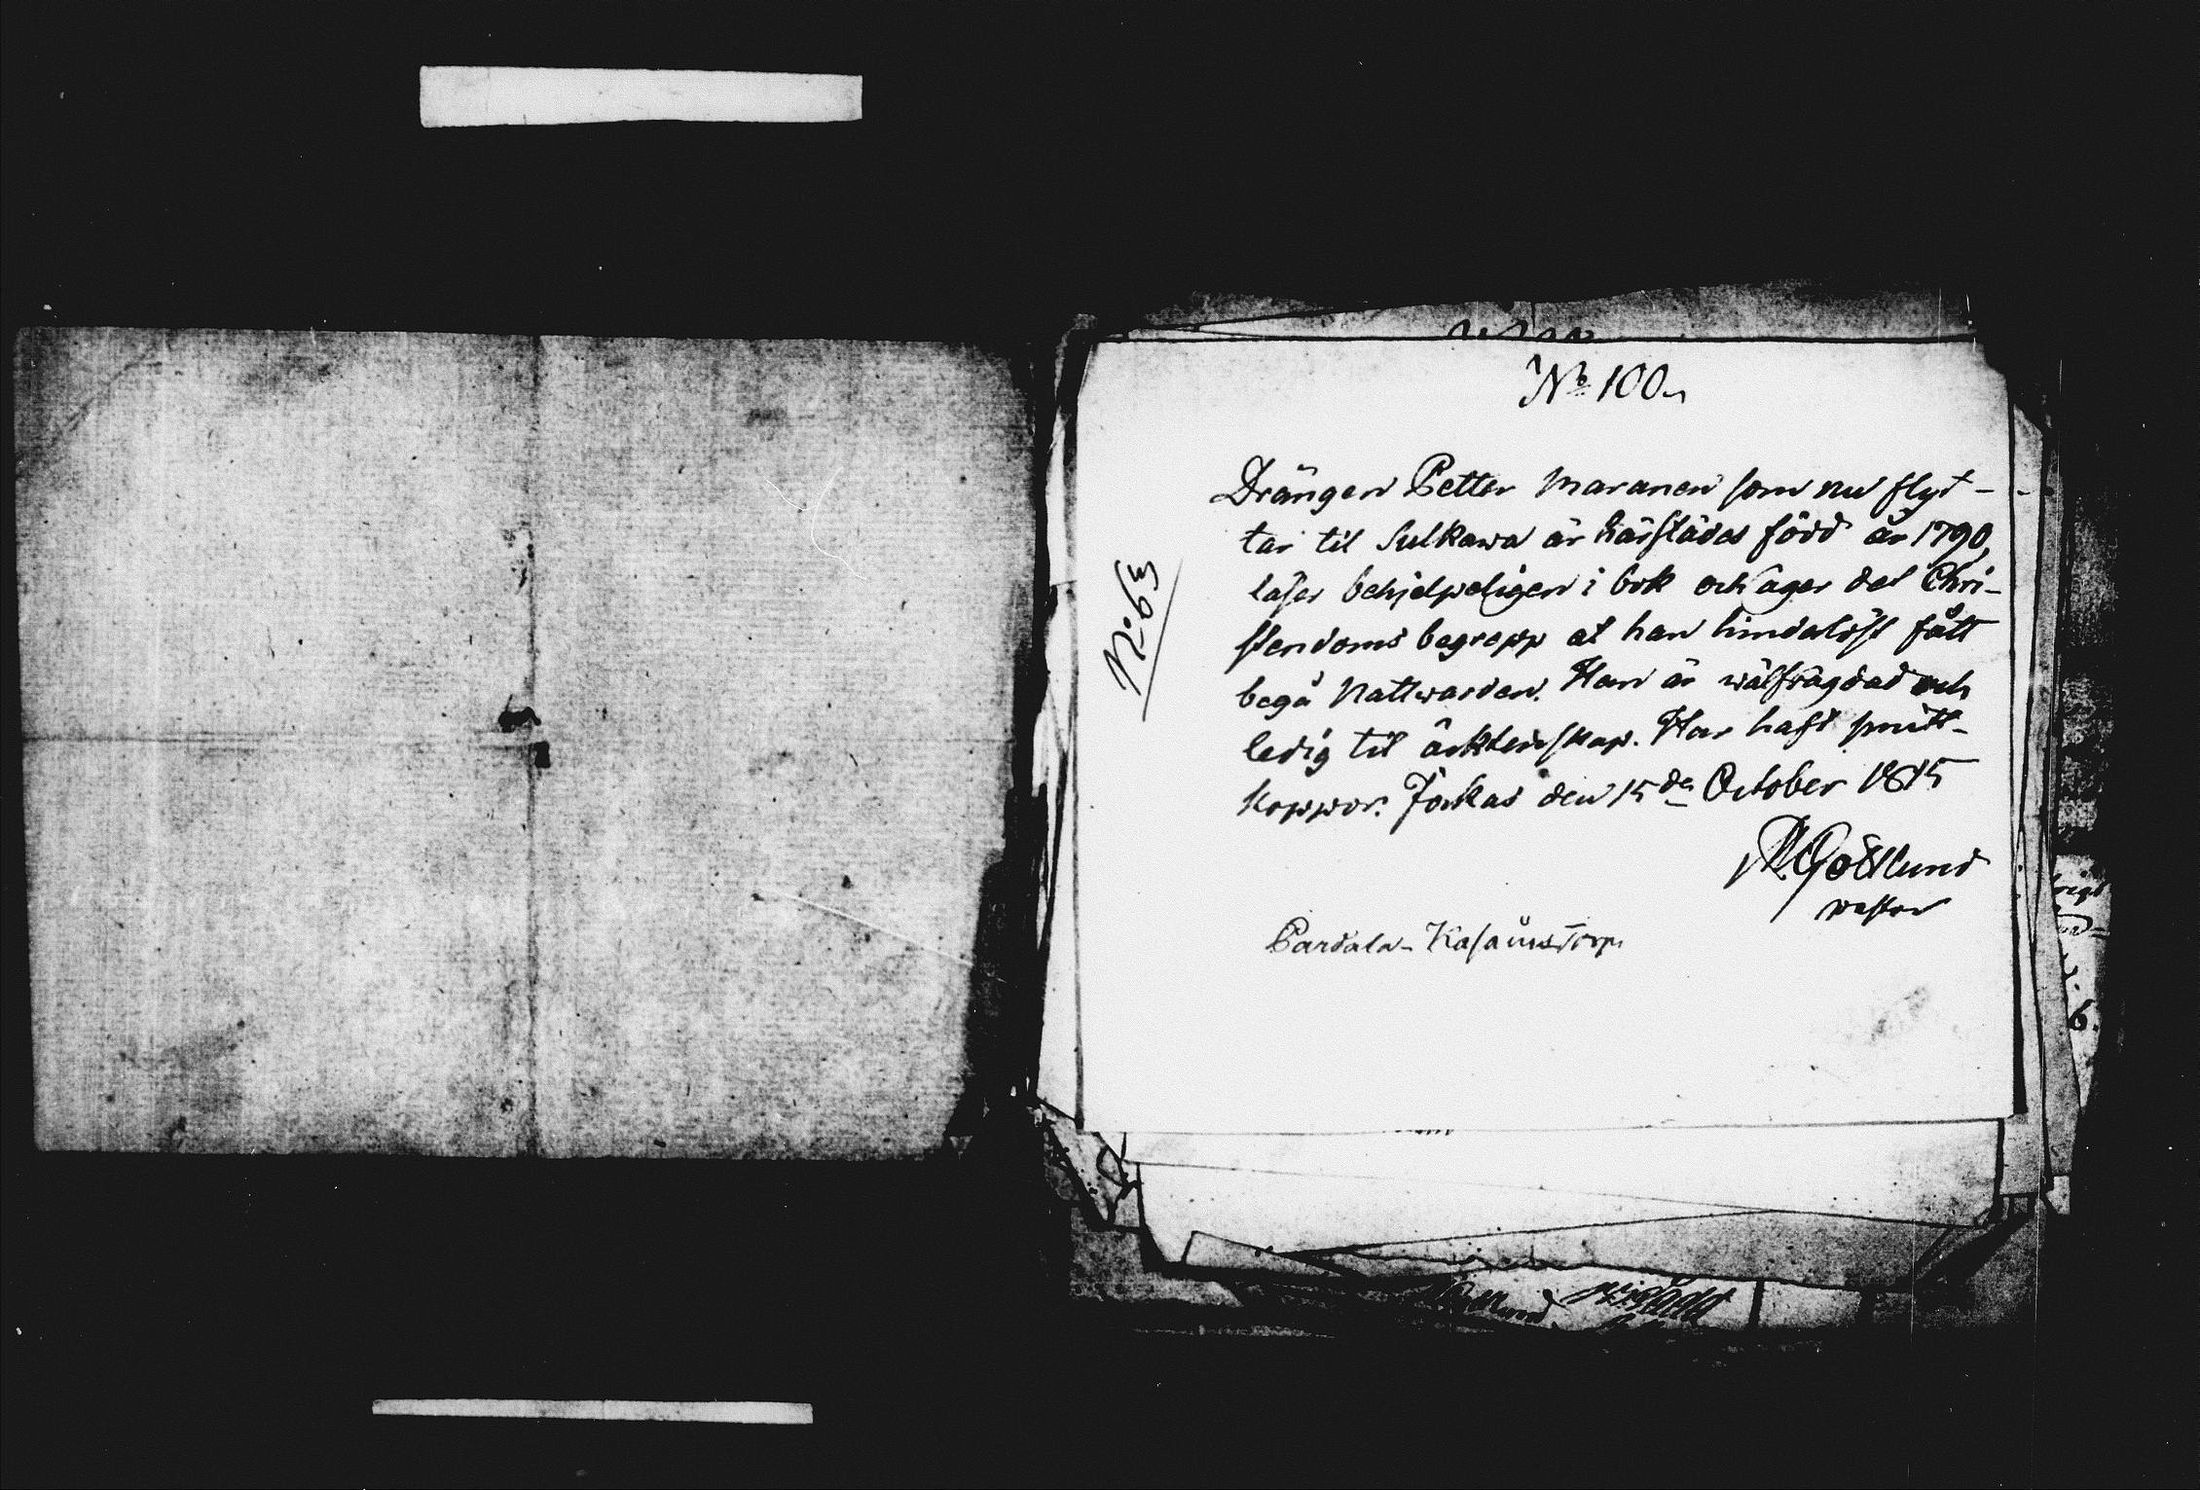 No 100.
No 63
Drängen Petter Maranen som nu flyt-
tar til Sulkawa är härstädes född år 1790,
läser behjelpeligen i bok och äger det Chri-
stendoms begrepp at han hindalöst fått
begå Nattwarden. Han är wälfrägdad och
ledig til äcktenskap. Har haft smitt-
koppor. Jockas den 15de October 1815
M. Gottlund
pastor
Pardala-